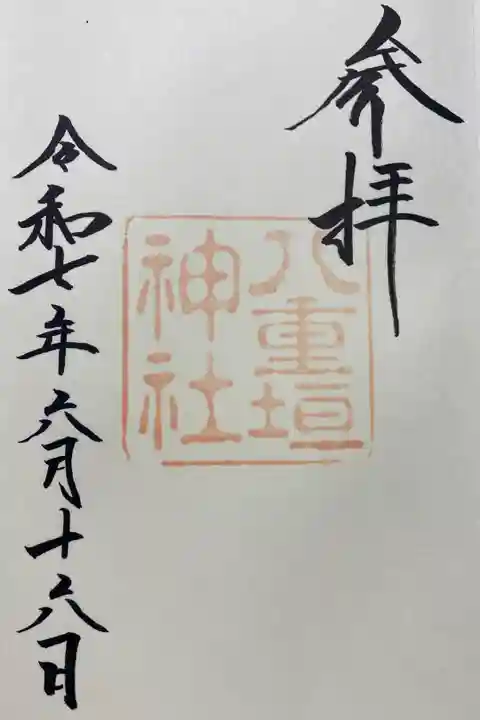 參拝
八重垣
神社
令和七年六月十六日